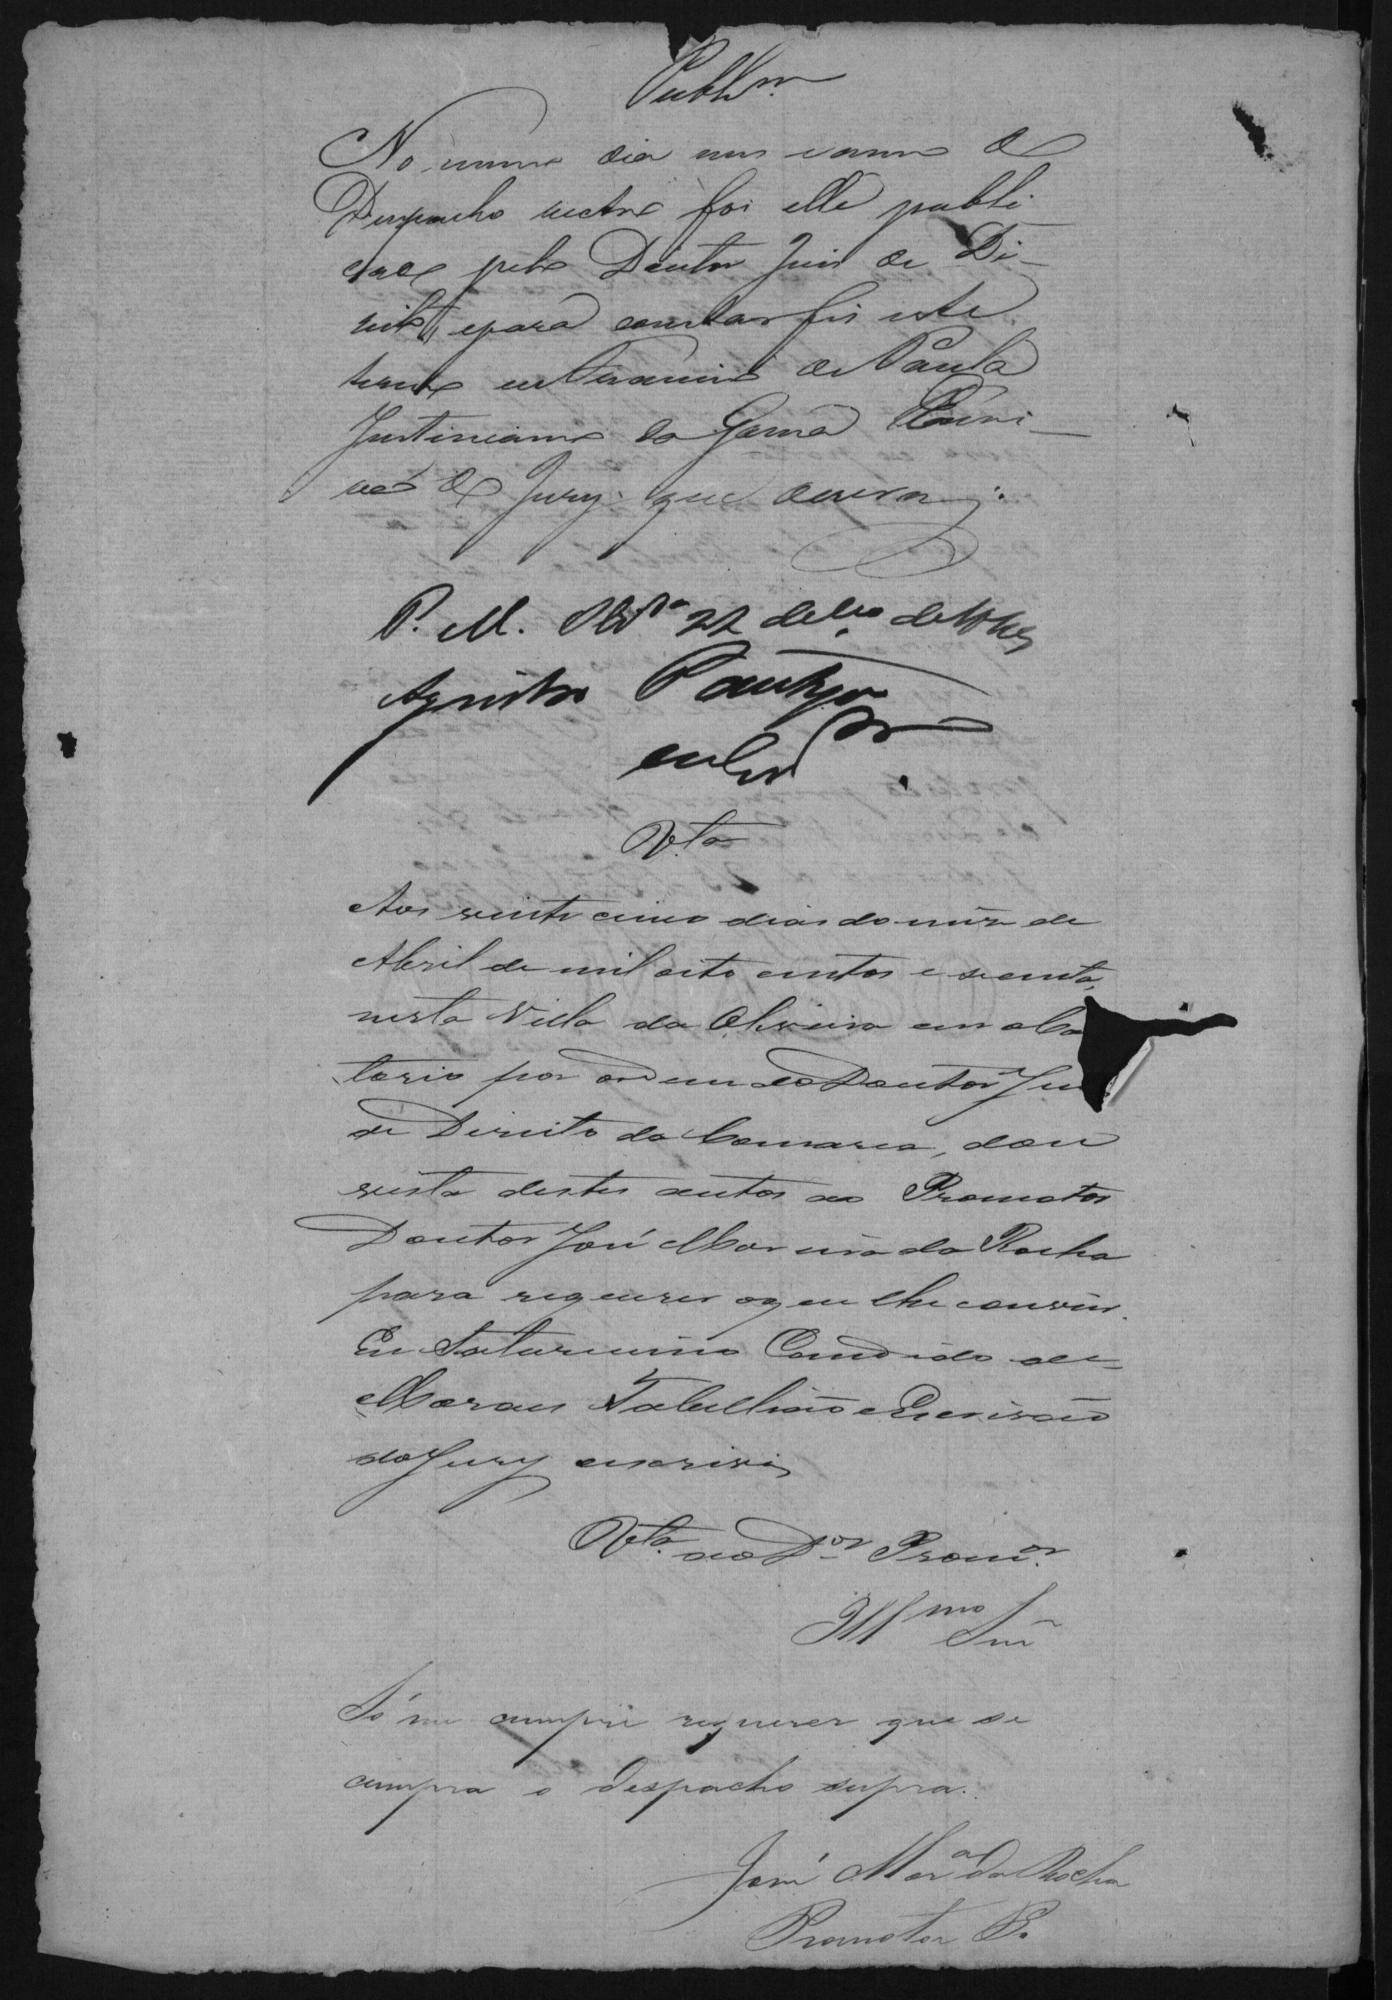 Publ.m
No mesmo dia mes e anno do
Despacho rectro foi elle publi
cado pelo Doutor Juis de Di-
reito, e para constar fis este
termo eu Francino de Paula
Justiniano da Gama Escri-
vão do Jury que escrevi.
P. M. 22 de de
Vta
Aos vinte cinco dias do mêz de
Abril de mil oito centos e secenta,
nesta Villa da Oliveira em o Car
torio por ordem do Doutor Jui
de Direito da Comarca, dou
vista destes autos ao Promotor
Doutor José Marianno da Rocha
para requerer o que lhe convier.
Eu Saturnino Candido de
Moraes Tabellião e Escrivão
do Jury escrevi
Vta. ao Dor Promor.
Illmo Snr
Só me cumpre requerer que se
cumpra o despacho supra.
José Mara da Rocha
Promotor P.